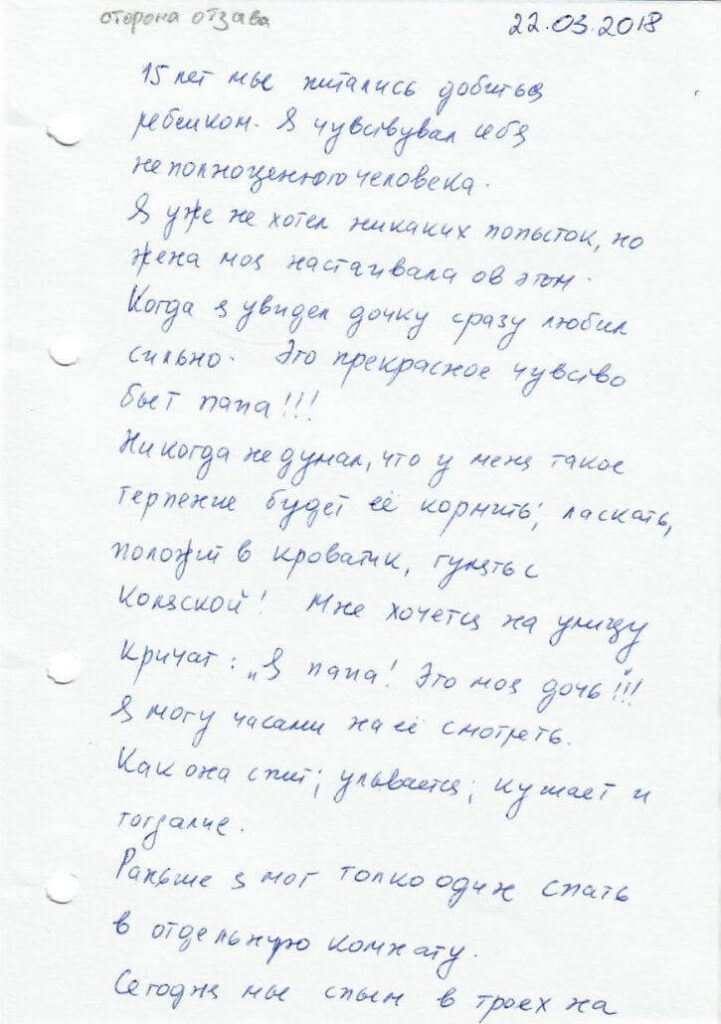 сторона отзава
22.03.2018
15 лет мые питались добиться
ребенком. Я чувствувал себя
неполноценного человека.
Я уже не хотел никаких попысток, но
жена моя настаивала ов этом.
Когда я увидел дочку сразу любил
сильно. Это прекрасное чувство
быт папа!!!
Никогда не думал, что у меня такое
терпение будет её кормить, ласкать,
положит в кроватик, гулять с
Коляской! Мне хочется на улицу
кричат: „Я папа! Это моя дочь!!!"
Я могу часами на её смотреть.
Как она спит; улывается; кушает и
тогдалие.
Раньше я мог толко один спать
в отдельную комнату.
Сегодня мые спым в троех на